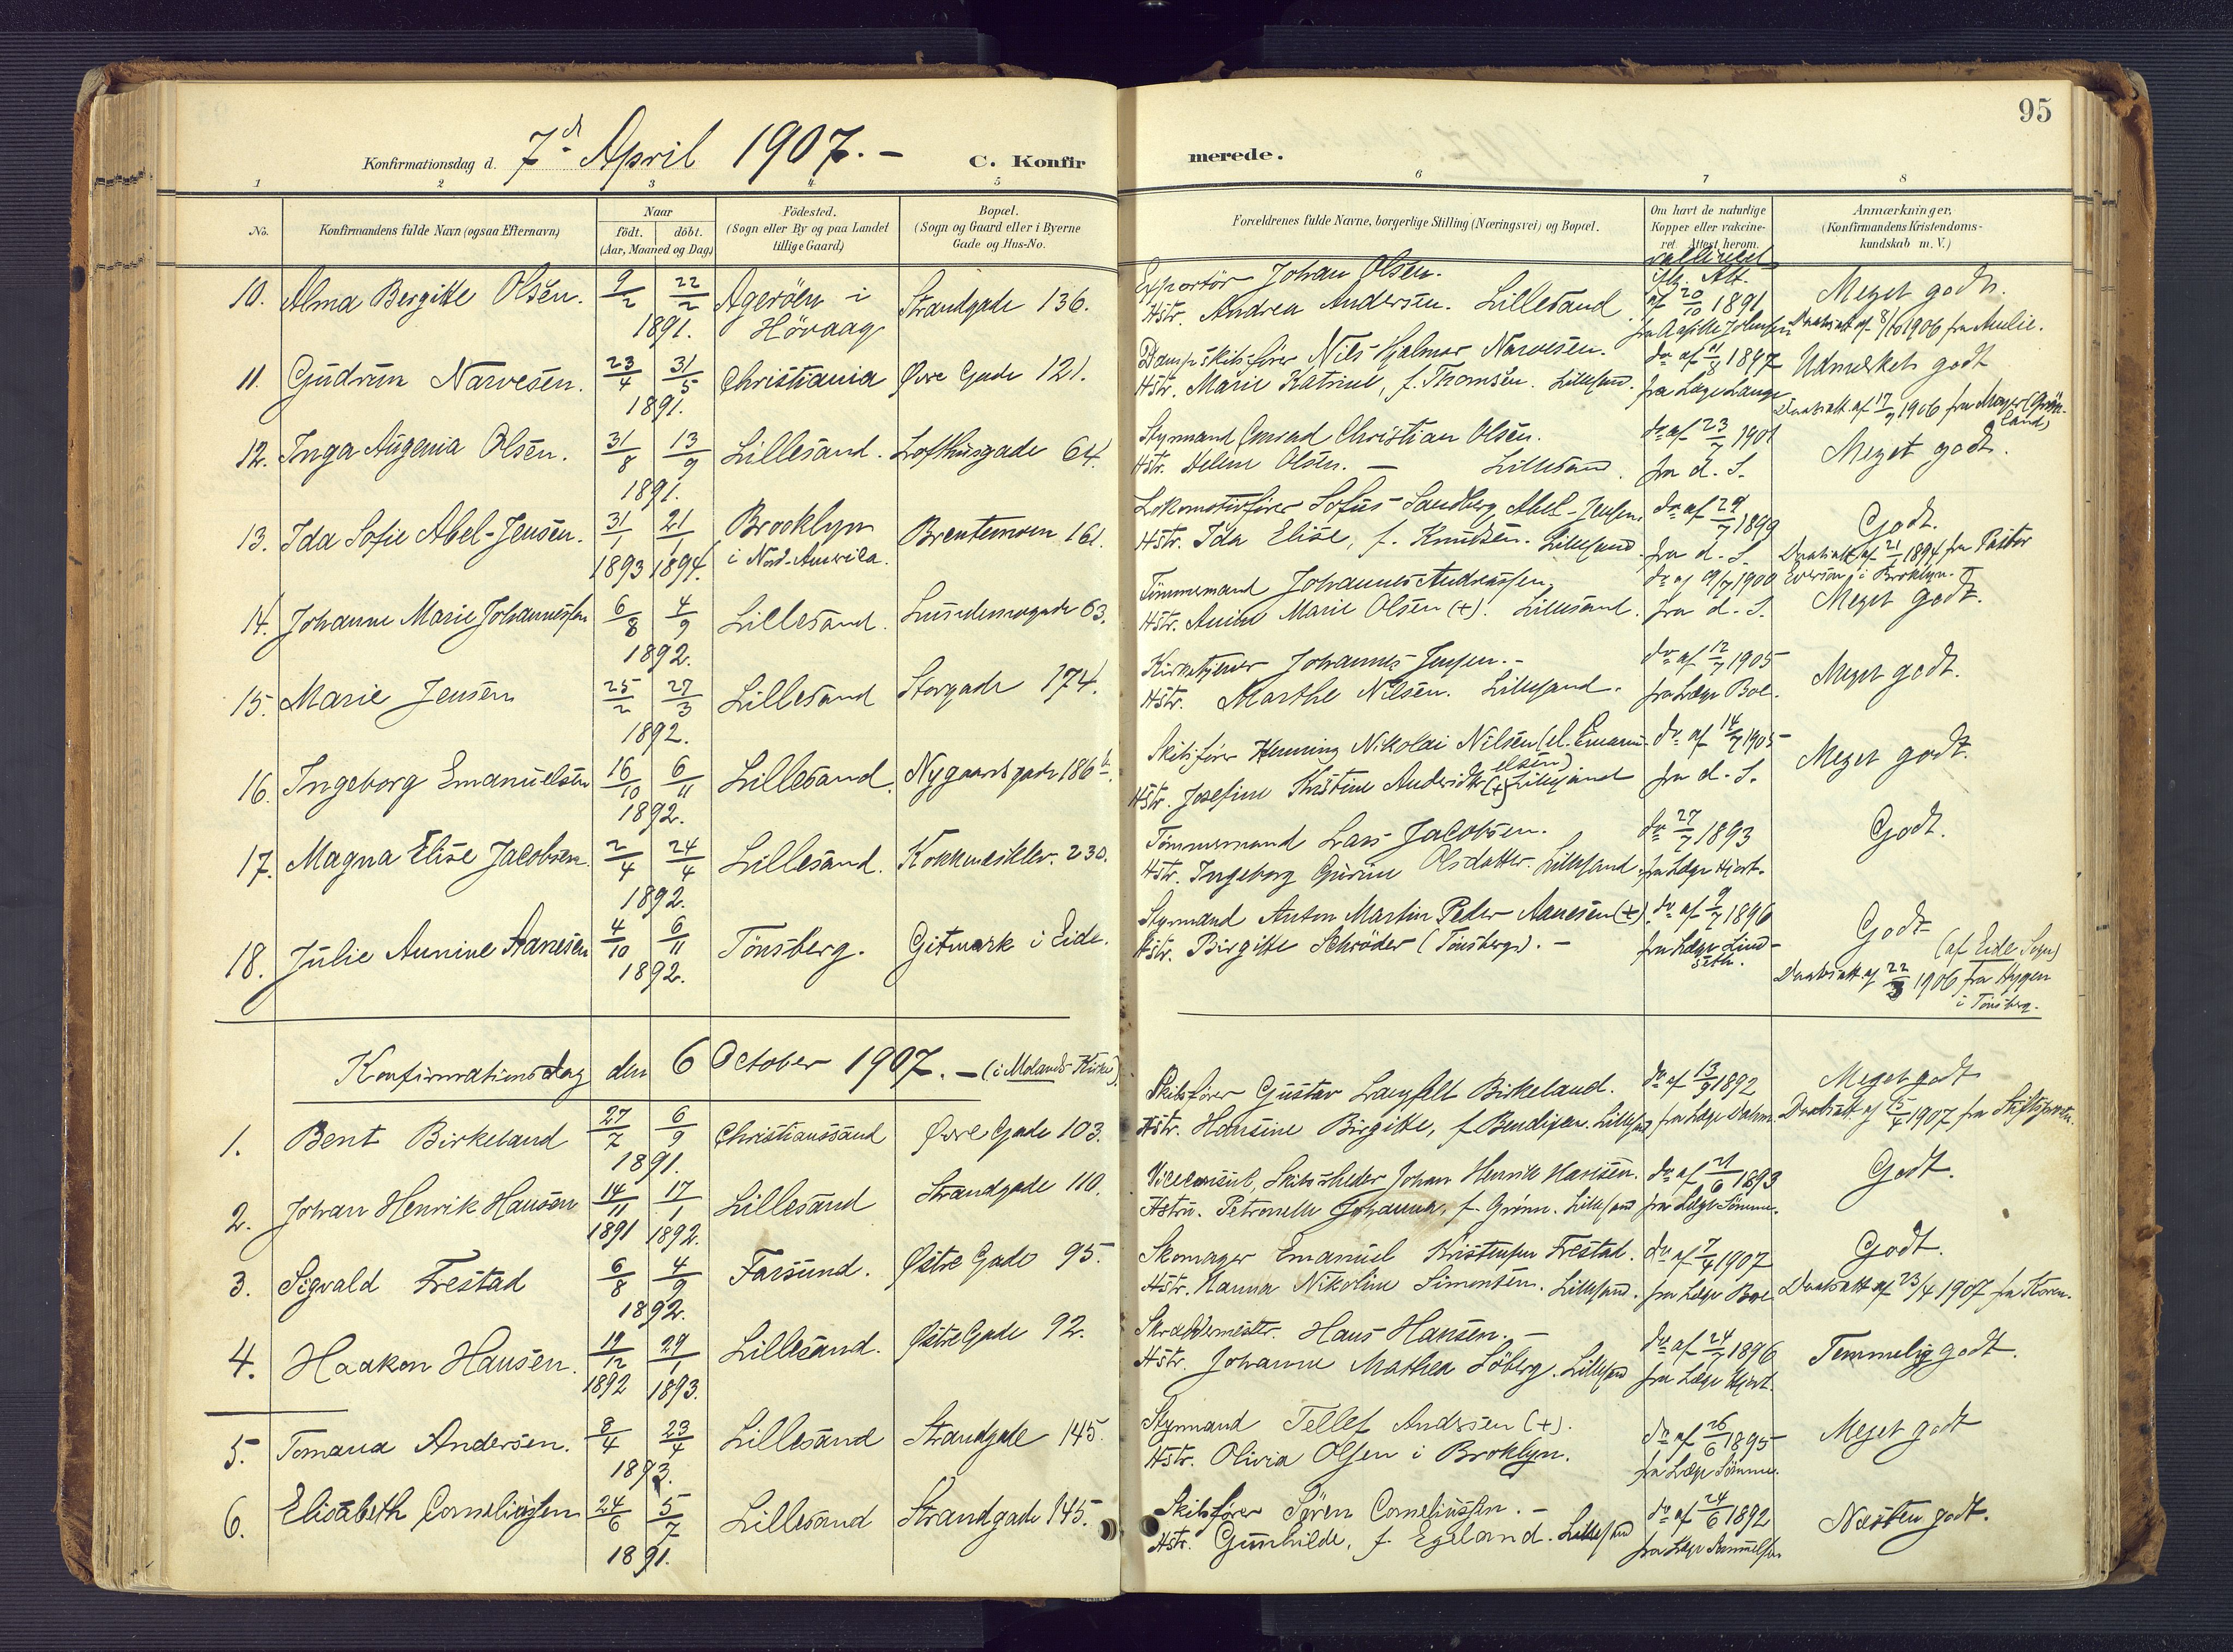 95
Konfirmationsdag d. 7d April 1907. –
C. Konfirmerede.
1 2 3 4 5 6 7 8
No.
Konfirmandens fulde Navn (ogsaa Efternavn)
Naar
födt. döbt.
(Aar, Maaned og Dag)
Födested.
(Sogn eller By og paa Landet
tillige Gaard)
Bopæl.
(Sogn og Gaard eller i Byerne
Gade og Hus-No.
Forældrenes fulde Navne, borgerlige Stilling (Næringsvei) og Bopæl.
Om havt de naturlige
Kopper eller vakcine-
ret. Attest herom.
Anmærkninger,
(Konfirmandens Kristendoms-
kundskab m. V.)
10. Alma Bergitte Olsen. 9/2 22/2 1891. Ageröen i Hövaag Strandgade 136.
Exportör Johan Olsen.
Hstr. Andrea Andersen. Lillesand.
Att. af 20/10 1891
Meget godt.
Daabsatt. af 8/10 1906 fra Aulie.
11. Gudrun Narvesen. 23/4 31/5 1891. Christiania Øvre Gade 121.
Dampskibsfører Nils Hjalmar Narvesen.
Hstr. Marie Katrine, f. Thomsen. Lillesand.
do af 11/8 1897
fra Læge Lange
Udmerket godt
Daabsatt. af 17/9 1906 fra Meyer (Grön-
land)
12. Inga Augenia Olsen. 31/8 13/9 1891. Lillesand. Lofthusgade 64.
Styrmand Conrad Christian Olsen.
Hstr. Helene Olsen. – Lillesand.
do af 23/7 1901
fra d. S.
Meget godt.
13. Ida Sofie Abel-Jensen. 31/1 1893 21/1 1894. Brooklyn i Nord-Amerika. Brentemoen 161.
Lokomotivfører Sofus Sandberg Abel-Jensen
Hstr. Ida Elise, f. Knudsen. Lillesand.
do af 29/7 1899
fra d. S.
Godt.
Daabsatt. af 21/1 1894 fra Pastor
Everson i Broklyn.
14. Johanne Marie Johannessen 6/8 4/9 1892. Lillesand. 63.
Tømmermand Johannes Andreassen
Hstr. Marie Olsen (+). Lillesand.
do af 9/7 1900
fra d. S.
Meget godt.
15. Marie Jensen 25/2 27/3 1892. Lillesand Storgade 174.
Kirketjener Johannes Jensen. –
Hstr. Marthe Nilsen. Lillesand.
do af 12/7 1905
fra Læge Boe.
Meget godt.
16. Ingeborg Emanuelsen 16/10 6/11 1892. Lillesand. Nygaardsgade 186b.
Skibsfører Henning Nikolai Nilsen (el. Emanu-
elsen)
Hstr. Josefine Kristine (+) Lillesand
do af 14/7 1905
fra d. S.
Meget godt.
17. Magna Elise Jacobsen. 2/4 24/4 1892. Lillesand. Kokkneskilv. 230.
Tømmermand Lars Jacobsen.
Hstr. Ingeborg Gurine Olsdatter. Lillesand.
do 27/7 1893
fra Læge Hjort.
Godt.
18. Julie Annine Aanesen 4/10 6/11 1892. Tönsberg. Gitmark i Eide.
Styrmand Anton Martin Peder Aanesen (+).
Hstr. Birgitte Schröder (Tönsberg). –
do af 9/7 1896
fra Læge Lind-
seth.
Godt
(af Eide Sogn)
Daabsatt. af 22/3 1906 fra Hygen
i Tönsberg.
Konfirmationsdag den 6 October 1907. – (i Molands Kirke).
1. Bent Birkeland 27/7 6/9 1891. Christianssand Øvre Gade 103.
Skibsfører Gustav Langfelt Birkeland.
Hstr. Hansine Birgitte, f. Bendixen. Lillesand
do af 13/9 1892
fra Læge Dahm.
Meget godt
Daabsatt. af 15/4 1907 fra Stiftsprovsten.
2. Johan Henrik Hansen 14/11 1891 17/1 1892. Lillesand Strandgade 110.
Viceconsul, Skibsrheder Johan Henrik Hansen.
Hstru. Petronelle Johanna, f. Grönn. Lillesand
do af 21/6 1893
fra Læge Sömme.
Godt.
3. Sigvald Frestad 6/8 4/9 1892. Farsund. Østre Gade 95.
Skomager Emanuel Kristensen Frestad.
Hstr. Hanna Nikoline Simonsen. Lillesand.
do af 7/4 1907
fra Læge Boe
Godt.
Daabsatt af 23/4 1907 fra Koren.
4. Haakon Hansen. 19/12 1892 29/1 1893. Lillesand. Østre Gade 92.
Skræddermester Hans Hansen. –
Hstr. Johanne Mathea Söberg. Lillesand
do af 24/7 1896
fra Læge Hjort.
Temmelig godt.
5. Tomana Andersen. 8/4 23/4 1893. Lillesand Strandgade 145.
Styrmand Tellef Andersen (+).
Hstr. Olivia Olsen i Broklyn.
do af 26/6 1895
fra Læge Sömme.
Meget godt
6. Elisabeth Corneliussen 24/6 5/7 1891. Lillesand Strandgade 145.
Skibsfører Sören Corneliussen. –
Hstr. Gunhilde, f. Egeland. Lillesand
do af 24/6 1892
fra Læge Samuelsen
Næsten godt.